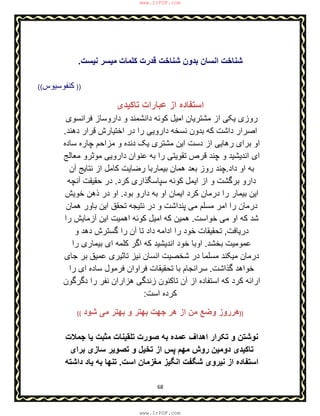 www.irPDF.com
شناخت انسان بدون شناخت قدرت کلمات میسر نیست.
(( کنفوسیوس))
استفاده از عبارات تاکیدی
روزی یکی از مشتریان امیل کوئه دانشمند و داروساز فرانسوی
اصرار داشت که بدون نسخه دارویی را در اختیارش قرار دهند.
او برای رهایی از دست این مشتری یک دنده و مزاحم چاره ساده
ای اندیشید و چند قرص تقویتی را به عنوان دارویی موثرو معالج
به او داد.چند روز بعد همان بیماربا رضایت کامل از نتایج آن
دارو برگشت و از ایمل کوئه سپاسگذاری کرد. در حقیقت آنچه
این بیمار را درمان کرد ایمان او به دارو بود. او در ذهن خویش
درمان را امر مسلم می پنداشت و در نتیجه تحقق این باور همان
شد که او می خواست. همین که امیل کوئه اهمیت این آزمایش را
دریافت, تحقیقات خود را ادامه داد تا آن را گسترش دهد و
عمومیت بخشد. اوبا خود اندیشید که اگر کلمه ای بیماری را
درمان میکند مسلما در شخصیت انسان نیز تاثیری عمیق بر جای
خواهد گذاشت. سرانجام با تحقیقات فراوان فرمول ساده ای را
ارائه کرد که استفاده از آن تاکنون زندگی هزاران نفر را دگرگون
کرده است:
((هرروز وضع من از هر جهت بهتر و بهتر می شود ))
نوشتن و تکرار اهداف عمده به صورت تلقینات مثبت یا جملات
تاکیدی دومین روش مهم پس از تخیل و تصویر سازی برای
استفاده از نیروی شگفت انگیز مغزمان است. تنها به یاد داشته
68
www.irPDF.com